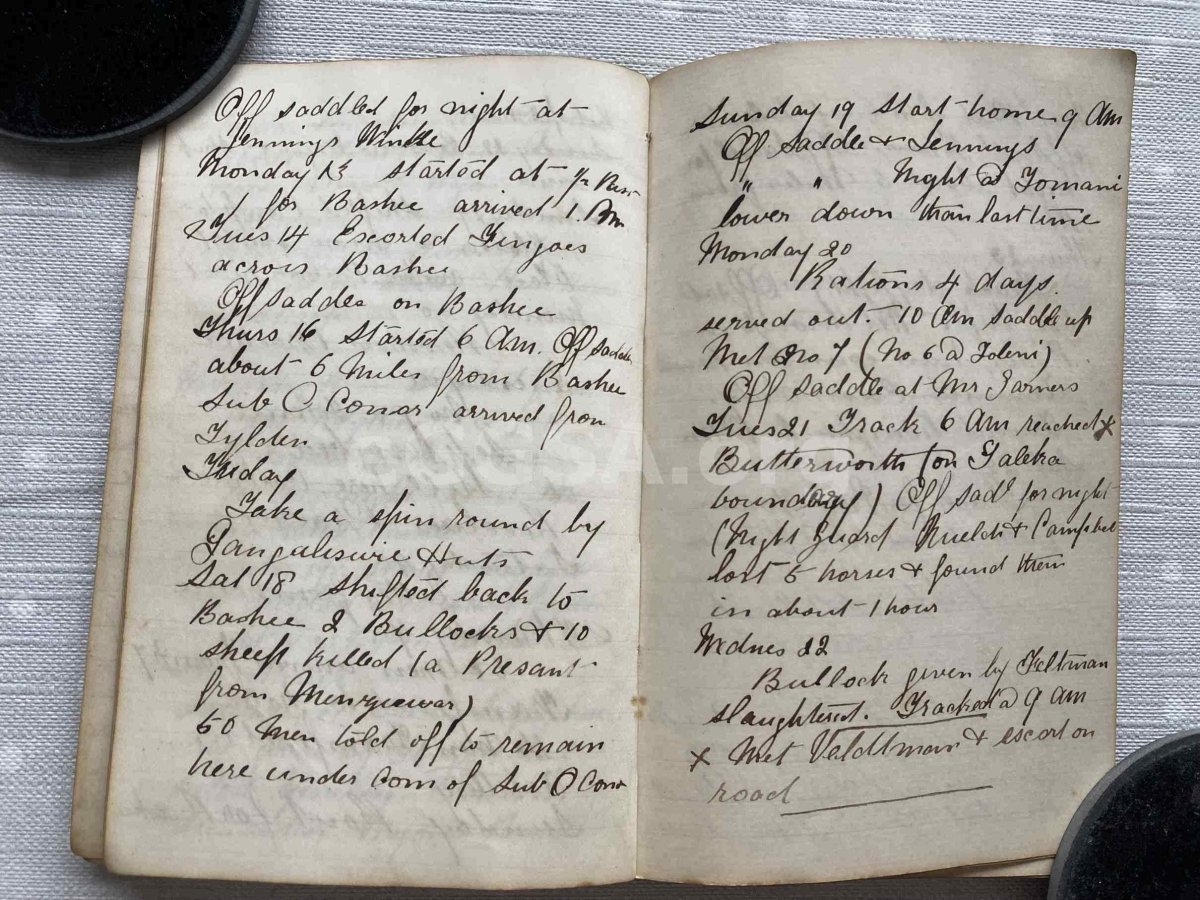 Off saddled for night at
Jennings Winkle
Monday 13 started at ½ Past
1 for Bashee arrived 1. Pm
Tues 14 Escorted Fingoes
across Bashee
Off saddle on Bashee
Thurs 16 started 6 Am. Off saddle
about 6 Miles from Bashee
Sub O Conor arrived from
Tylden
Friday
Take a spin round by
Huts
Sat 18 shifted back to
Bashee 2 Bullocks & 10
sheep killed (a Presant
from
50 Men told off to remain
here under Com of Sub O Conor
Sunday 19 start home 9 Am
Off saddle & Jennings
" " Night @ Tomani
lower down than last time
Monday 20
Rations 4 days.
served out. 10 Am saddle up
Met No 7 (No 6 @ Toleni)
Off saddle at Mr
Tues 21 Track 6 Am reached x
Butterworth (on Galeka
boundary) Off sadl for night
(Night guard & Campbel
lost 5 horses & found them
in about 1 hour
Wednes 22
Bullock given by Feltman
slaughtered. Tracked @ 9 am
x Met Veldtman & escort on
road